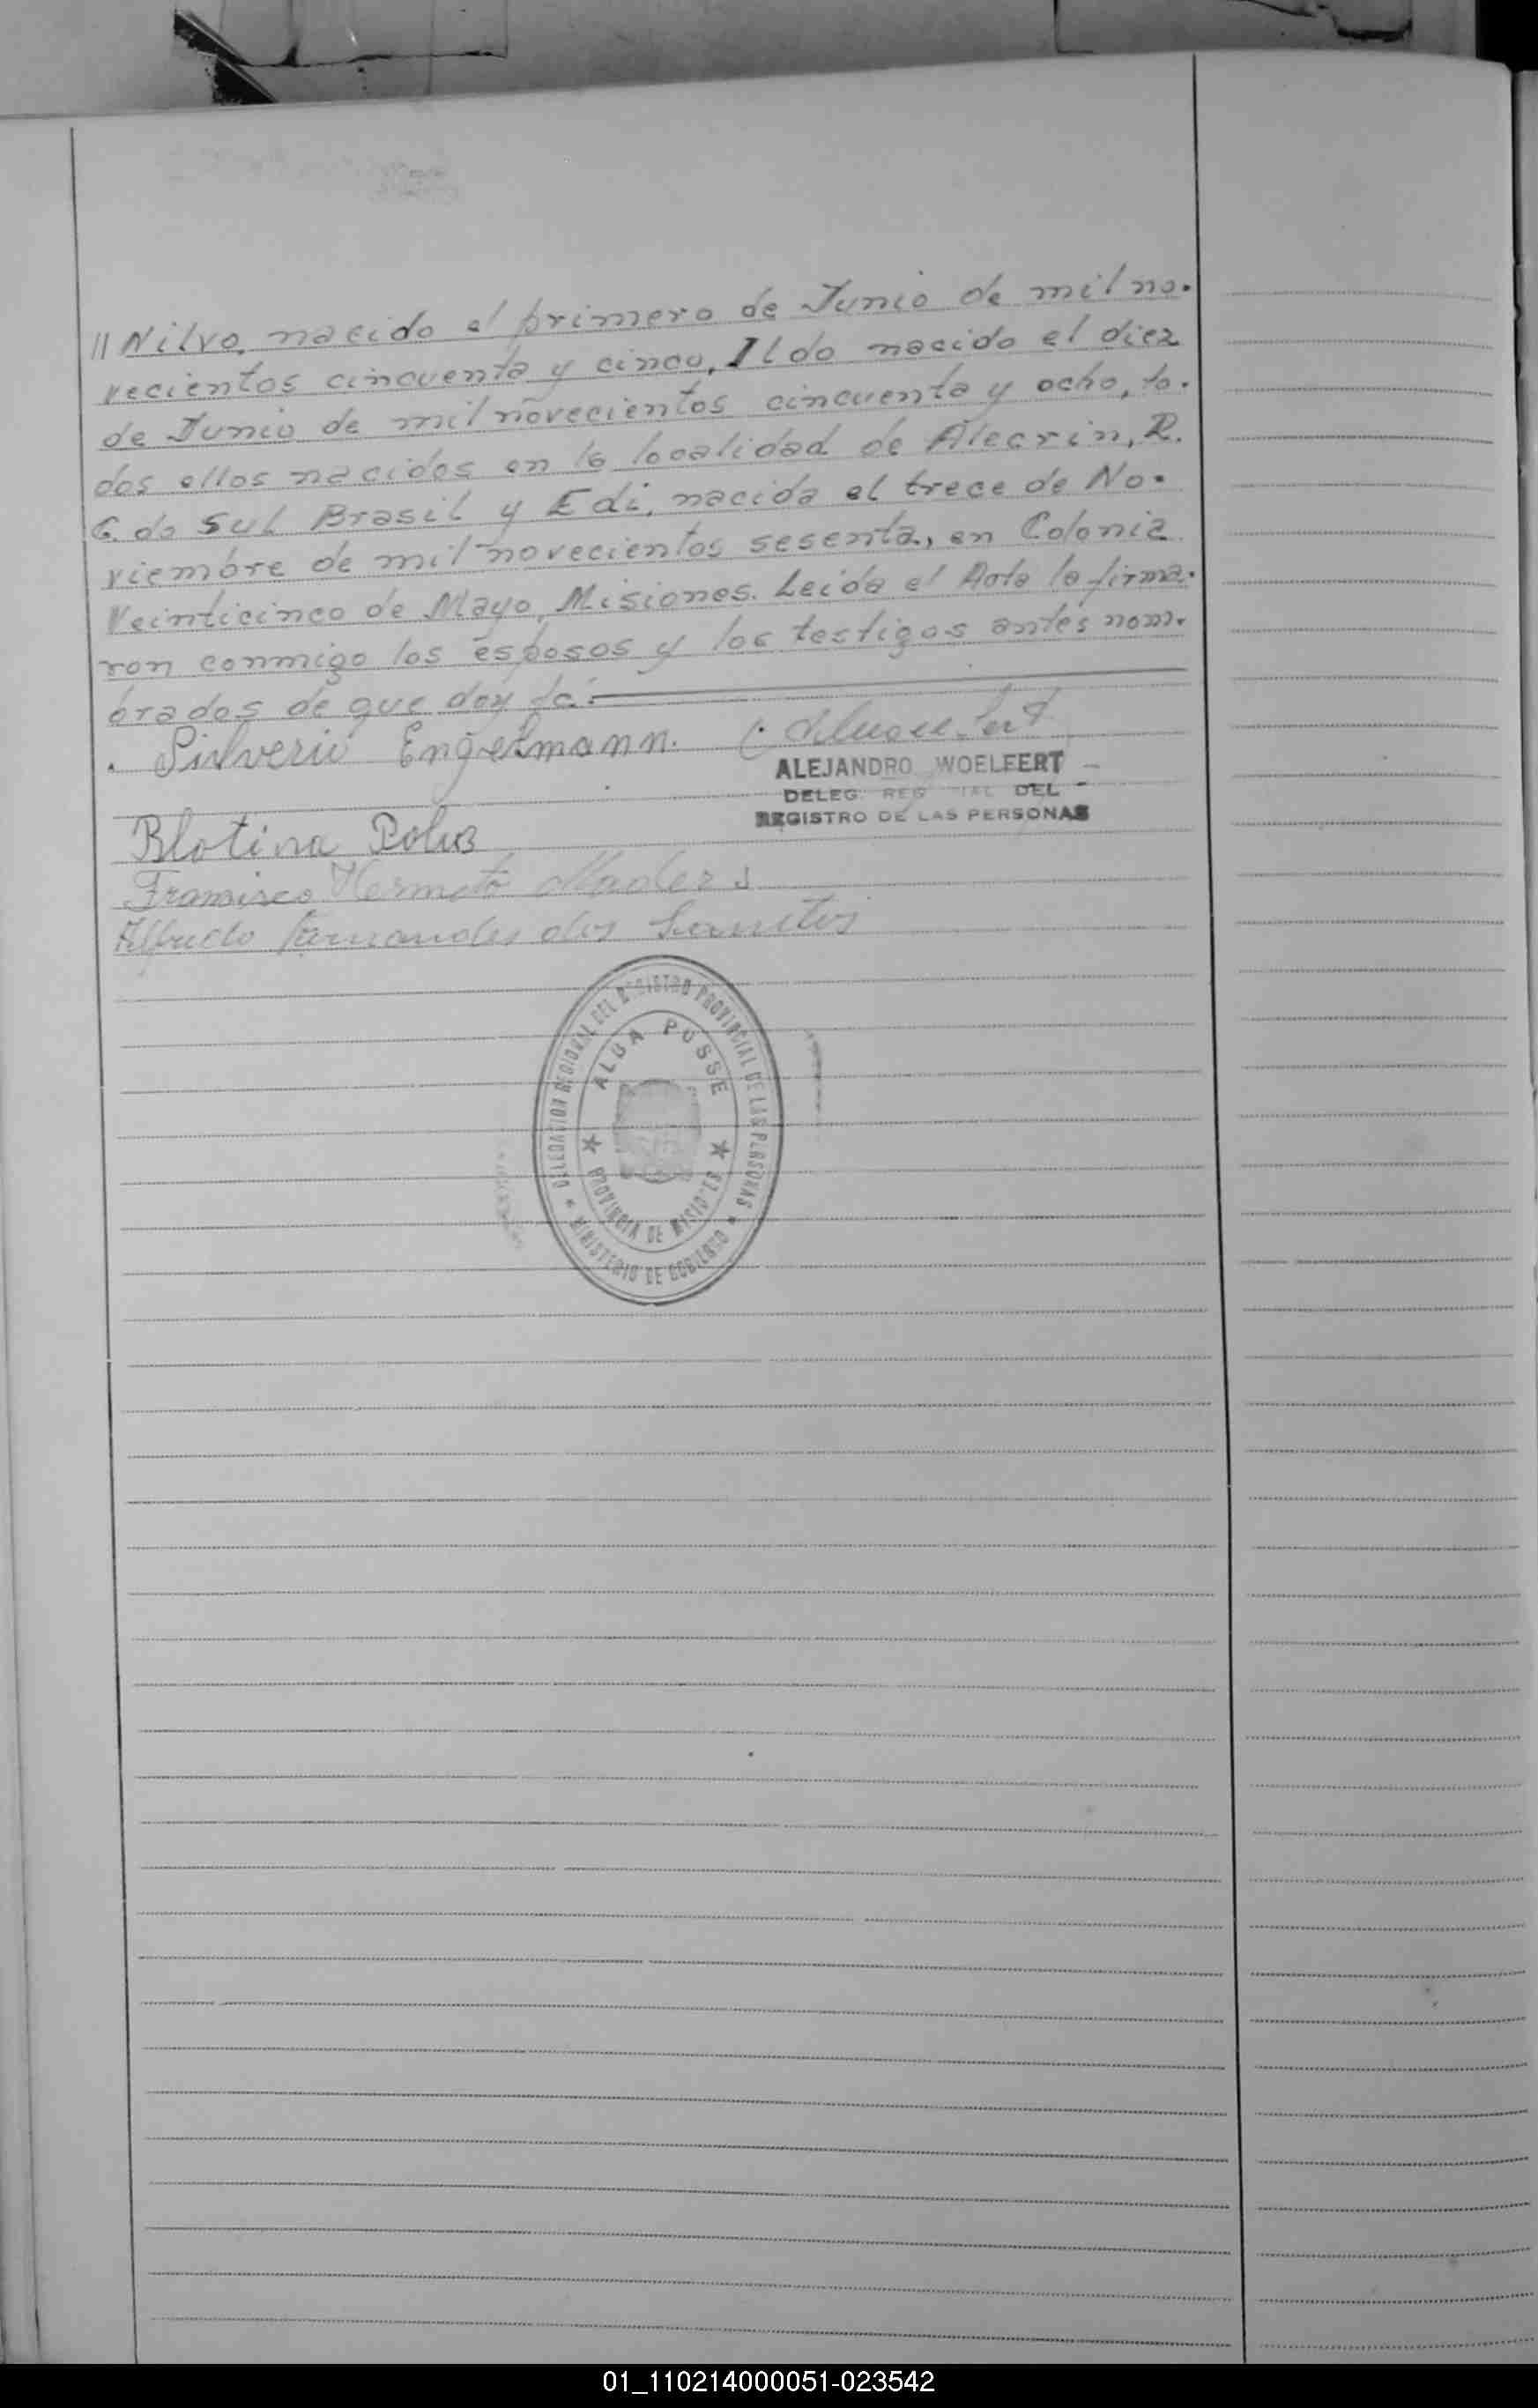 // Nilvo, nacido el primero de Junio de mil no-
vecientos cincuenta y cinco, Ildo nacido el diez
de Junio de mil novecientos cincuenta y ocho, to-
dos ellos nacidos en la localidad de Alecrin, R.
G. do Sul Brasil y Edi, nacida el trece de No-
viembre de mil novecientos sesenta, en Colonia
Veinticinco de Mayo, Misiones. Leida el Acta la firma-
ron conmigo los esposos y los testigos antes nom-
brados de que doy fé.
Silverio Engelmann.
ALEJANDRO WOELFERT
DELEG. DEL
REGISTRO DE LAS PERSONAS
Blotina Polus
Francisco Hermeto Maders
Alfredo Fernandes dos Santos
DELEGACION REGIONAL DEL REGISTRO PROVINCIAL DE LAS PERSONAS
ALBA POSSE
PROVINCIA DE MISIONES
MINISTERIO DE GOBIERNO
01_110214000051-023542